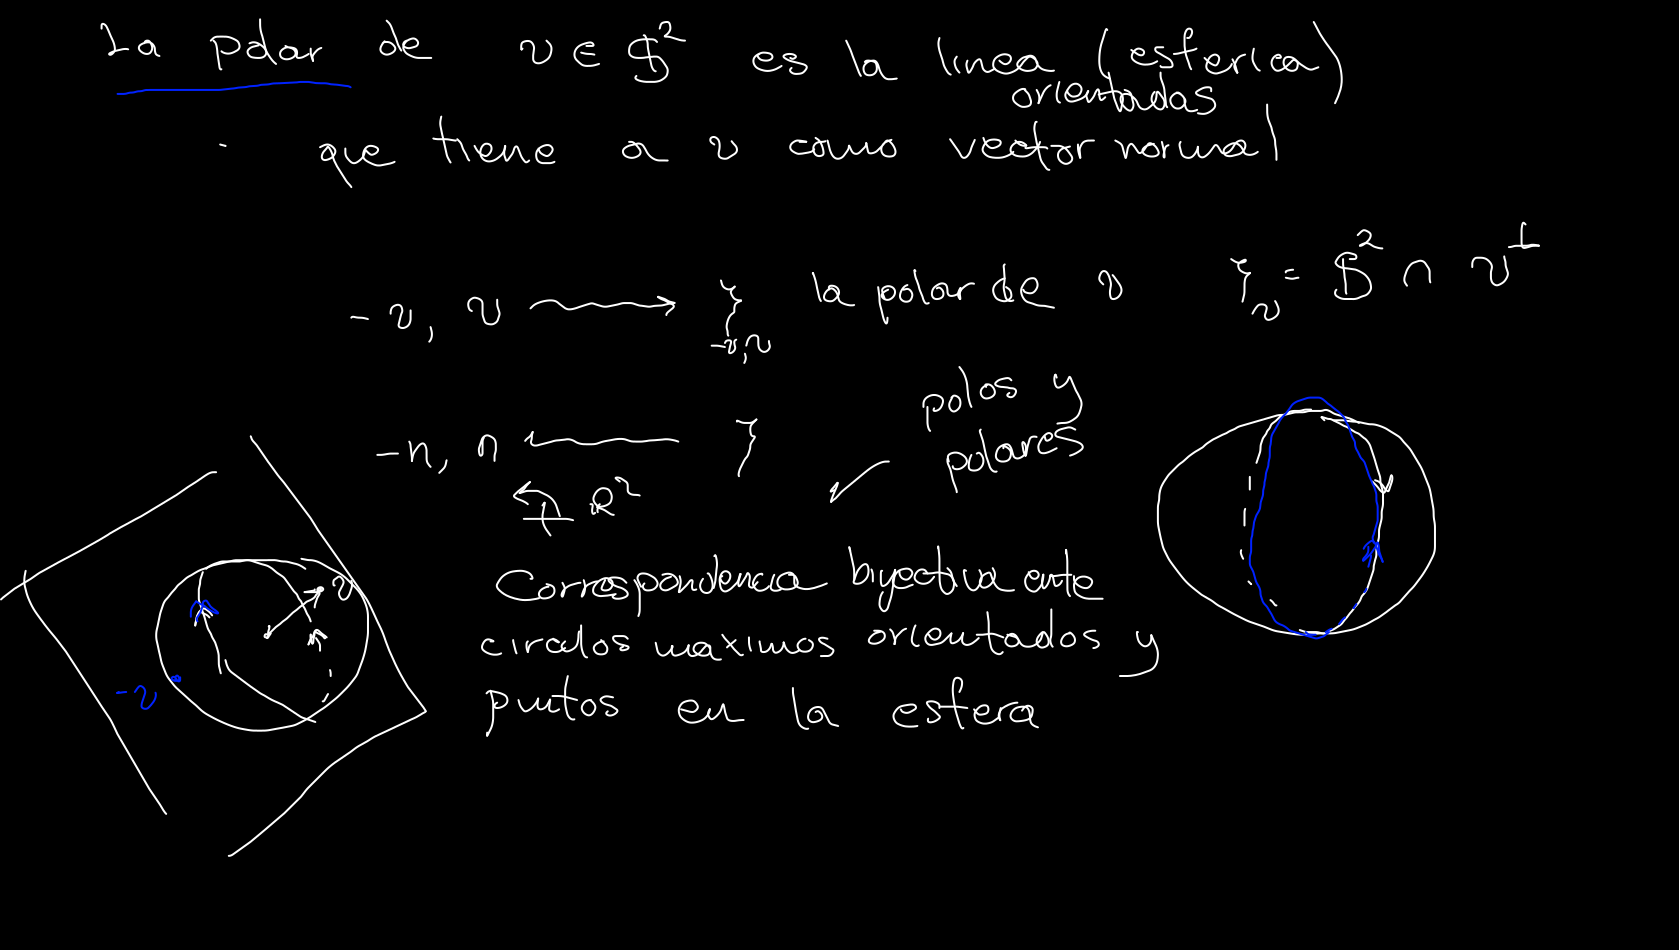 La polar de v ∈ $² es la linea (esferica)
orientadas
que tiene a v como vector normal
-v, v ⟶ ξ₋ᵥ,ᵥ la polar de v ξᵥ = $² ∩ v^⊥
-n, n ⟵ ξ
polos y
polares
R²
Correspondencia biyectiva ente
circulos maximos orientados y
puntos en la esfera
v
-v